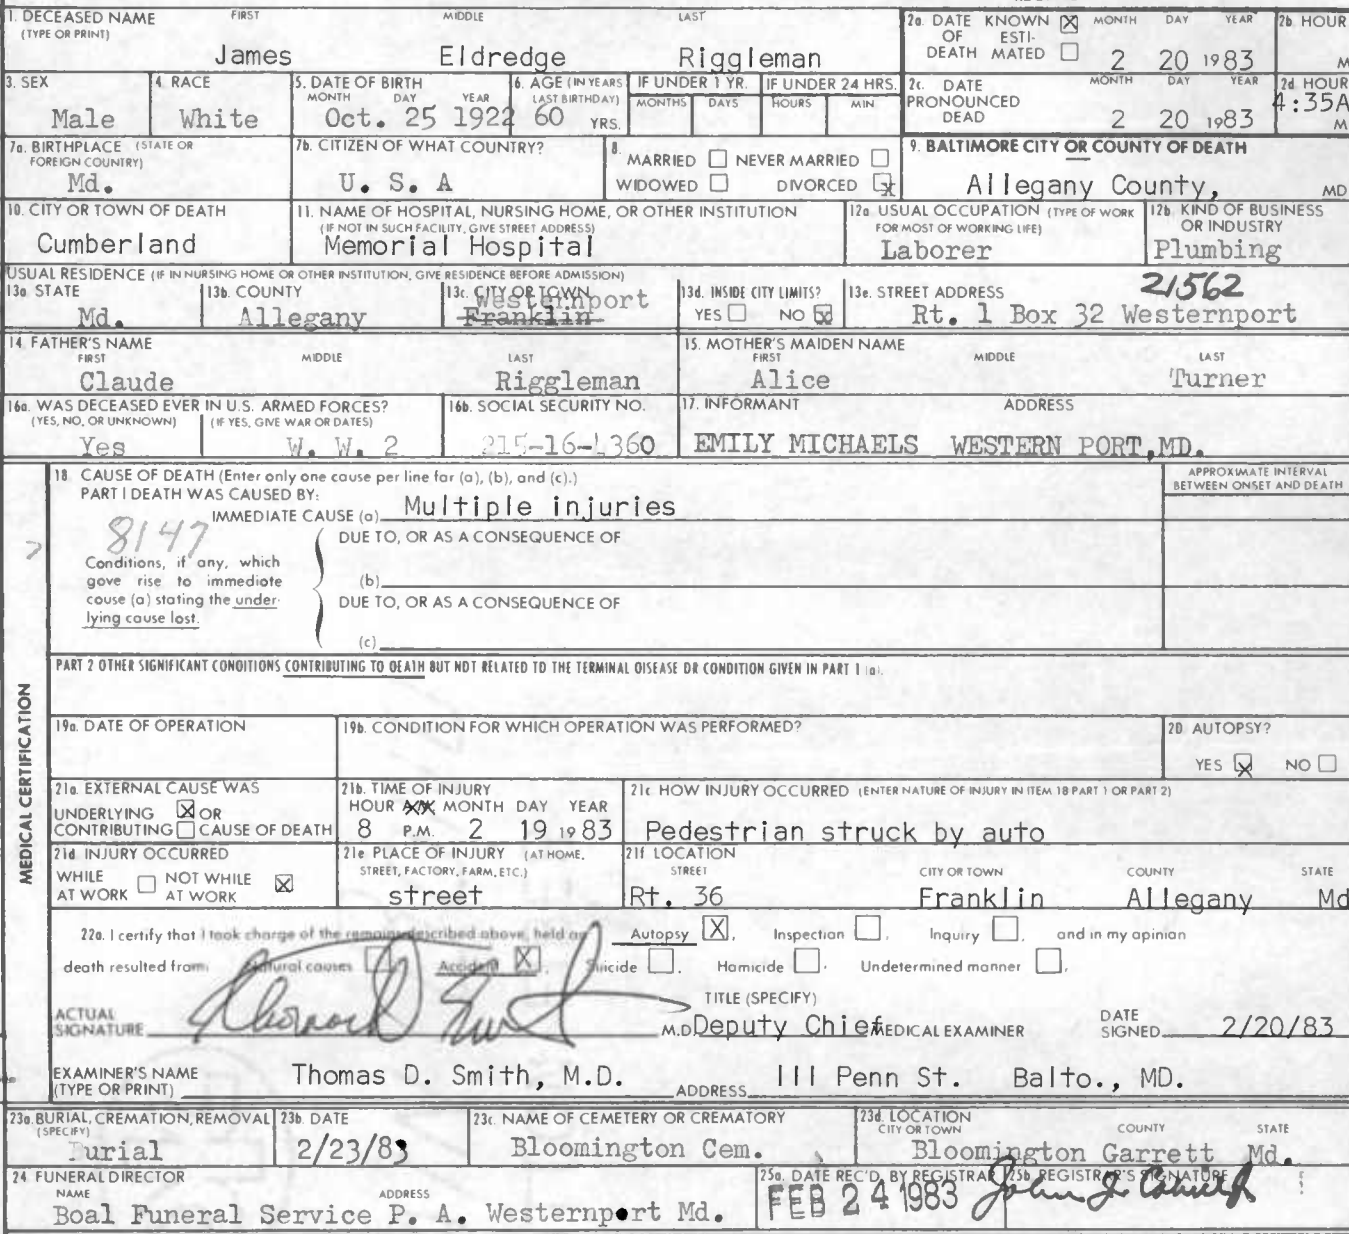 1. DECEASED NAME FIRST MIDDLE LAST
(TYPE OR PRINT)
James Eldredge Riggleman
2a. DATE KNOWN ☒ MONTH DAY YEAR
OF ESTI-
DEATH MATED ☐ 2 20 1983
2b. HOUR
M
3. SEX
Male
4. RACE
White
5. DATE OF BIRTH
MONTH DAY YEAR
Oct. 25 1922
6. AGE (IN YEARS
LAST BIRTHDAY)
60 YRS.
IF UNDER 1 YR.
MONTHS DAYS
IF UNDER 24 HRS.
HOURS MIN
2c. DATE MONTH DAY YEAR
PRONOUNCED
DEAD 2 20 1983
2d. HOUR
4:35A
M
7a. BIRTHPLACE (STATE OR
FOREIGN COUNTRY)
Md.
7b. CITIZEN OF WHAT COUNTRY?
U. S. A
8.
MARRIED ☐ NEVER MARRIED ☐
WIDOWED ☐ DIVORCED ☒
9. BALTIMORE CITY OR COUNTY OF DEATH
Allegany County, MD
10. CITY OR TOWN OF DEATH
Cumberland
11. NAME OF HOSPITAL, NURSING HOME, OR OTHER INSTITUTION
(IF NOT IN SUCH FACILITY, GIVE STREET ADDRESS)
Memorial Hospital
12a. USUAL OCCUPATION (TYPE OF WORK
FOR MOST OF WORKING LIFE)
Laborer
12b. KIND OF BUSINESS
OR INDUSTRY
Plumbing
USUAL RESIDENCE (IF IN NURSING HOME OR OTHER INSTITUTION, GIVE RESIDENCE BEFORE ADMISSION)
13a. STATE
Md.
13b. COUNTY
Allegany
13c. CITY OR TOWN
Westernport
Franklin
13d. INSIDE CITY LIMITS?
YES ☐ NO ☒
13e. STREET ADDRESS 21562
Rt. 1 Box 32 Westernport
14. FATHER'S NAME
FIRST MIDDLE LAST
Claude Riggleman
15. MOTHER'S MAIDEN NAME
FIRST MIDDLE LAST
Alice Turner
16a. WAS DECEASED EVER IN U.S. ARMED FORCES?
(YES, NO, OR UNKNOWN) (IF YES, GIVE WAR OR DATES)
Yes W. W. 2
16b. SOCIAL SECURITY NO.
215-16-4360
17. INFORMANT ADDRESS
EMILY MICHAELS WESTERN PORT,MD.
MEDICAL CERTIFICATION
18. CAUSE OF DEATH (Enter only one cause per line for (a), (b), and (c).)
PART I DEATH WAS CAUSED BY:
IMMEDIATE CAUSE (a) Multiple injuries
APPROXIMATE INTERVAL
BETWEEN ONSET AND DEATH
8147
DUE TO, OR AS A CONSEQUENCE OF
Conditions, if any, which
gove rise to immediote
couse (a) stating the under-
lying couse lost.
(b)
DUE TO, OR AS A CONSEQUENCE OF
(c)
PART 2 OTHER SIGNIFICANT CONDITIONS CONTRIBUTING TO DEATH BUT NOT RELATED TO THE TERMINAL DISEASE OR CONDITION GIVEN IN PART 1 (a).
19a. DATE OF OPERATION
19b. CONDITION FOR WHICH OPERATION WAS PERFORMED?
20. AUTOPSY?
YES ☒ NO ☐
21a. EXTERNAL CAUSE WAS
UNDERLYING ☒ OR
CONTRIBUTING ☐ CAUSE OF DEATH
21b. TIME OF INJURY
HOUR MONTH DAY YEAR
8 P.M. 2 19 1983
21c. HOW INJURY OCCURRED (ENTER NATURE OF INJURY IN ITEM 18 PART 1 OR PART 2)
Pedestrian struck by auto
21d. INJURY OCCURRED
WHILE AT WORK ☐ NOT WHILE AT WORK ☒
21e. PLACE OF INJURY (AT HOME,
STREET, FACTORY, FARM, ETC.)
street
21f. LOCATION
STREET CITY OR TOWN COUNTY STATE
Rt. 36 Franklin Allegany Md
22a. I certify that I took charge of the remains described above, held an Autopsy ☒, Inspection ☐, Inquiry ☐, and in my opinion
death resulted from: Natural causes ☐, Accident ☒, Suicide ☐, Homicide ☐, Undetermined manner ☐,
ACTUAL
SIGNATURE
M.D.
TITLE (SPECIFY)
Deputy Chief MEDICAL EXAMINER
DATE
SIGNED 2/20/83
EXAMINER'S NAME
(TYPE OR PRINT) Thomas D. Smith, M.D. ADDRESS 111 Penn St. Balto., MD.
23a. BURIAL, CREMATION, REMOVAL
(SPECIFY)
Burial
23b. DATE
2/23/83
23c. NAME OF CEMETERY OR CREMATORY
Bloomington Cem.
23d. LOCATION
CITY OR TOWN COUNTY STATE
Bloomington Garrett Md.
24 FUNERAL DIRECTOR
NAME ADDRESS
Boal Funeral Service P. A. Westernport Md.
25a. DATE REC'D. BY REGISTRAR
FEB 24 1983
25b. REGISTRAR'S SIGNATURE
John J.